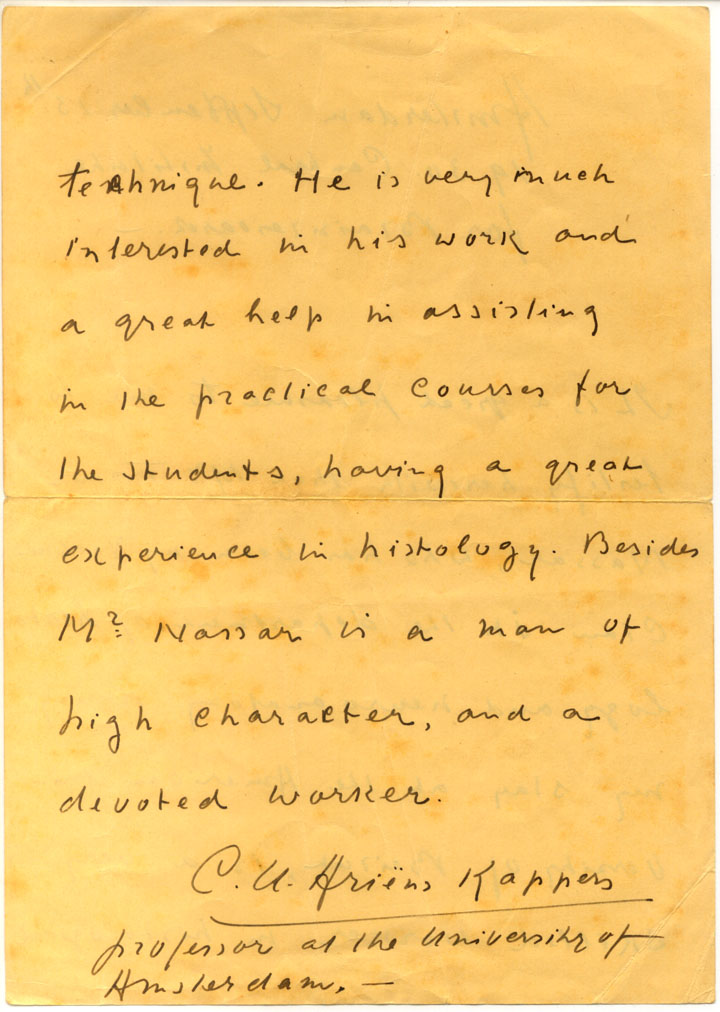 technique. He is very much
interested in his work and
a great help in assisting
in the practical courses for
the students, having a great
experience in histology. Besides
Mr. Nassar is a man of
high character, and a
devoted worker.
C. U. Ariëns Kappers
professor at the University of
Amsterdam. —